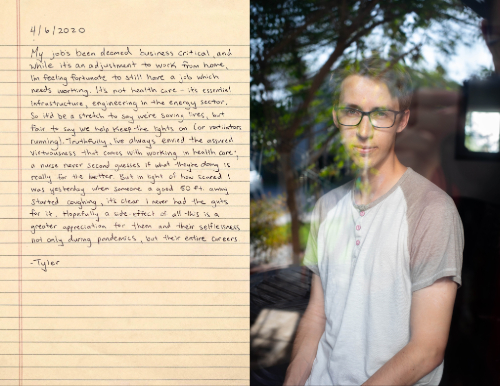 4/6/2020
My job's been deemed business critical, and
while its an adjustment to work from home,
I'm feeling fortunate to still have a job which
needs working. It's not health care - its essential
infrastructure, engineering in the energy sector.
So it'd be a stretch to say we're saving lives, but
fair to say we help keep the lights on (or ventilators
running). Truthfully, I've always envied the assured
virtuousness that comes with working in health care;
a nurse never second guesses if what they're doing is
really for the better. But in light of how scared I
was yesterday when someone a good 50 ft. away
started coughing, it's clear I never had the guts
for it. Hopefully a side-effect of all this is a
greater appreciation for them and their selflessness
not only during pandemics, but their entire careers
-Tyler